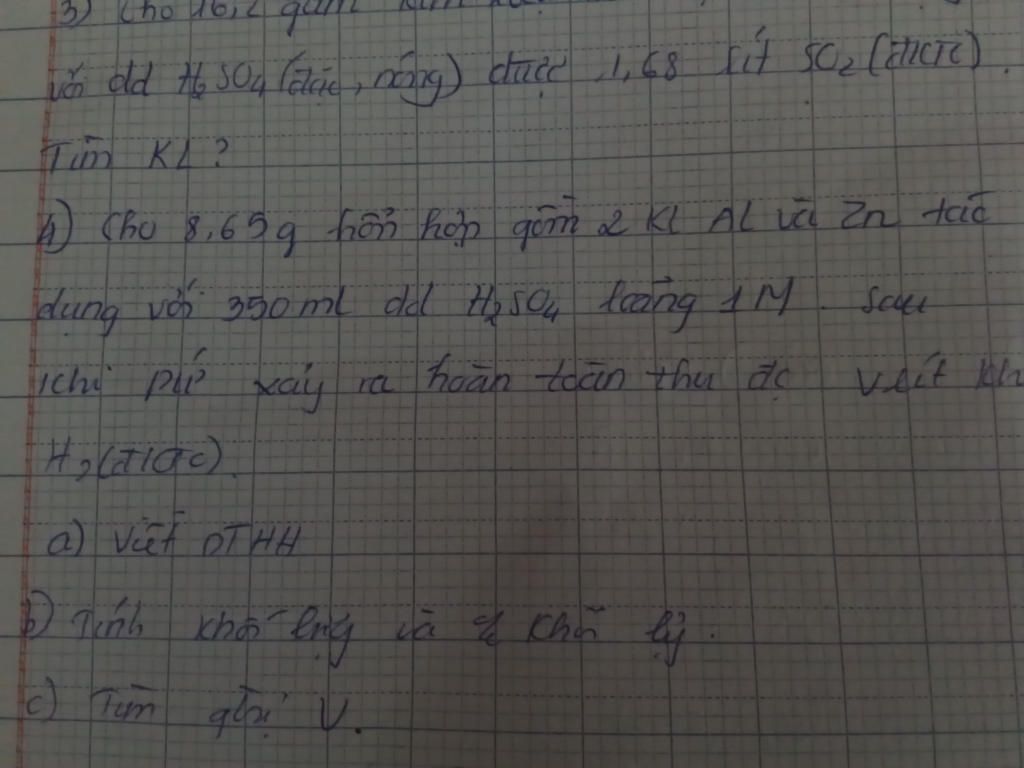 3) Cho 16,2 gam kim
với dd H₂SO₄ (đặc, nóng) được 1,68 lít SO₂ (đktc).
Tìm KL?
4) Cho 8,65g hỗn hợp gồm 2 KL Al và Zn tác
dụng với 350ml dd H₂SO₄ loãng 1M. Sau
khi pứ xảy ra hoàn toàn thu đc V lít kh
H₂ (đktc).
a) Viết PTHH
b) Tính khối lượng và % khối lg.
c) Tìm gtrị V.